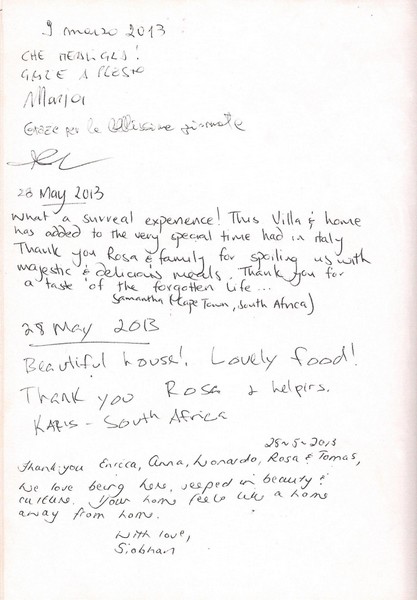 9 marzo 2013
CHE MERAVIGLIA!
GRAZIE A PRESTO
Maria
Grazie per la bellissima giornata
28 May 2013
What a surreal experience! This Villa & home
has added to the very special time had in Italy
Thank you Rosa & family for spoiling us with
majestic & delicious meals. Thank you for
a taste of the forgotten life...
Samantha (Cape Town, South Africa)
28 May 2013
Beautiful house! Lovely food!
Thank you Rosa & helpirs.
- South Africa
28-5-2013
Thank you Enrica, Anna, Leonardo, Rosa & Tomas,
We love being here, seeped in beauty &
culture. Your home feels like a home
away from home.
With love,
Siobhan